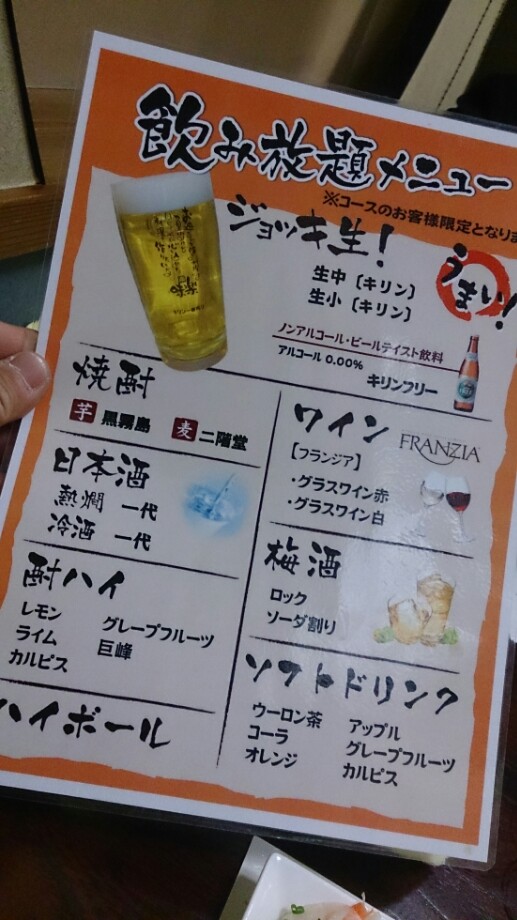 飲み放題メニュー
※コースのお客様限定となりま
ジョッキ生!
うまい!
生中〔キリン〕
生小〔キリン〕
ノンアルコール・ビールテイスト飲料
アルコール 0.00%
キリンフリー
焼酎
芋 黒霧島 麦 二階堂
日本酒
熱燗 一代
冷酒 一代
酎ハイ
レモン グレープフルーツ
ライム 巨峰
カルピス
ハイボール
ワイン
FRANZIA
[フランジア]
・グラスワイン赤
・グラスワイン白
梅酒
ロック
ソーダ割り
ソフトドリンク
ウーロン茶 アップル
コーラ グレープフルーツ
オレンジ カルピス